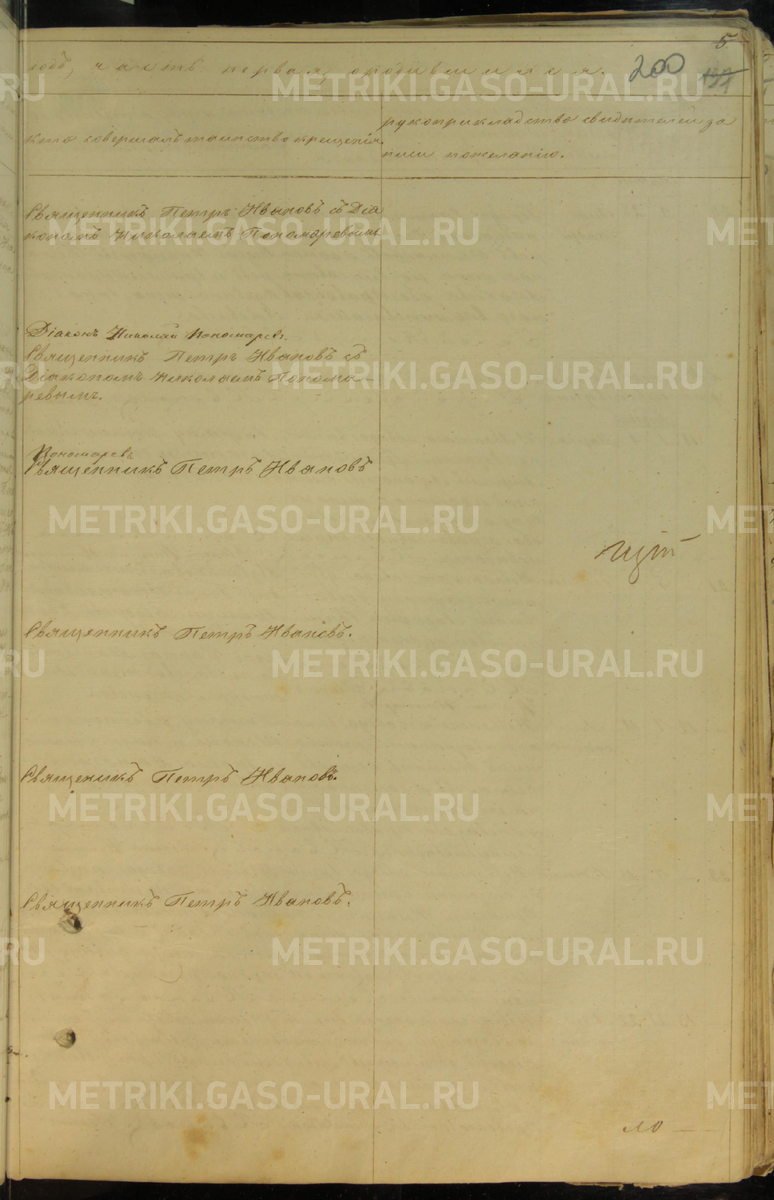 5
годъ, часть первая, о родившихся. 200
кто совершалъ таинство крещенія.
рукоприкладство свидѣтелей за
писи по желанію.
Священникъ Петръ Ивановъ съ Діа
кономъ Николаемъ Пономаревымъ
Діаконъ Николай Пономаревъ.
Священникъ Петръ Ивановъ съ
Діакономъ Николаемъ Понома-
ревымъ.
Пономаревъ
Священникъ Петръ Ивановъ
Священникъ Петръ Ивановъ.
Священикъ Петръ Ивановъ.
Священникъ Петръ Ивановъ.
METRIKI.GASO-URAL.RU